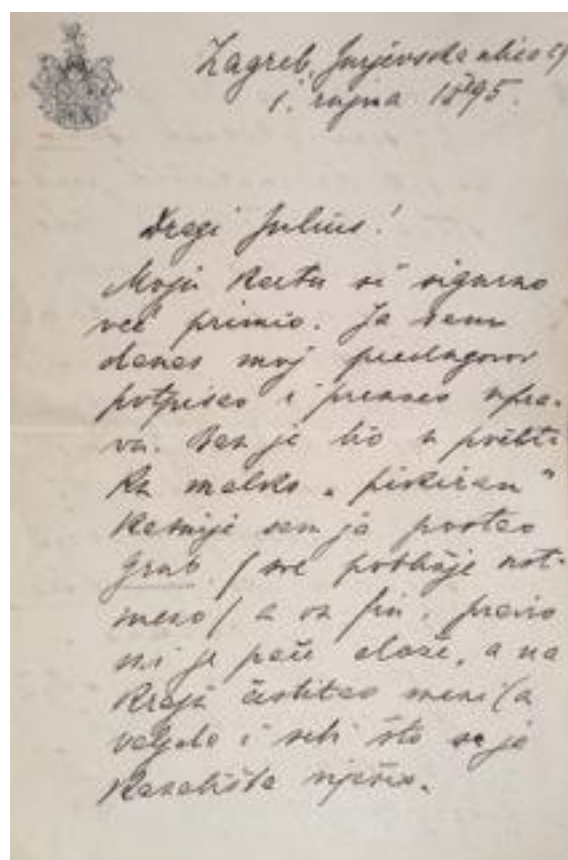 Zagreb, Jurjevska ulica
1. rujna 1895.
Dragi Julius!
Moju kartu si sigurno
već primio. Ja sam
danas moj predugovor
potpisao i preuzeo upra-
vu. je bio u počet-
ku malko „pikiran"
kasnije sam ja postao
grub (sve potanje ust-
meno) a on fin, pravio
mi je pače, a na
kraju čestitao meni (a
valjda i sebi što se je
kazališta riješio.